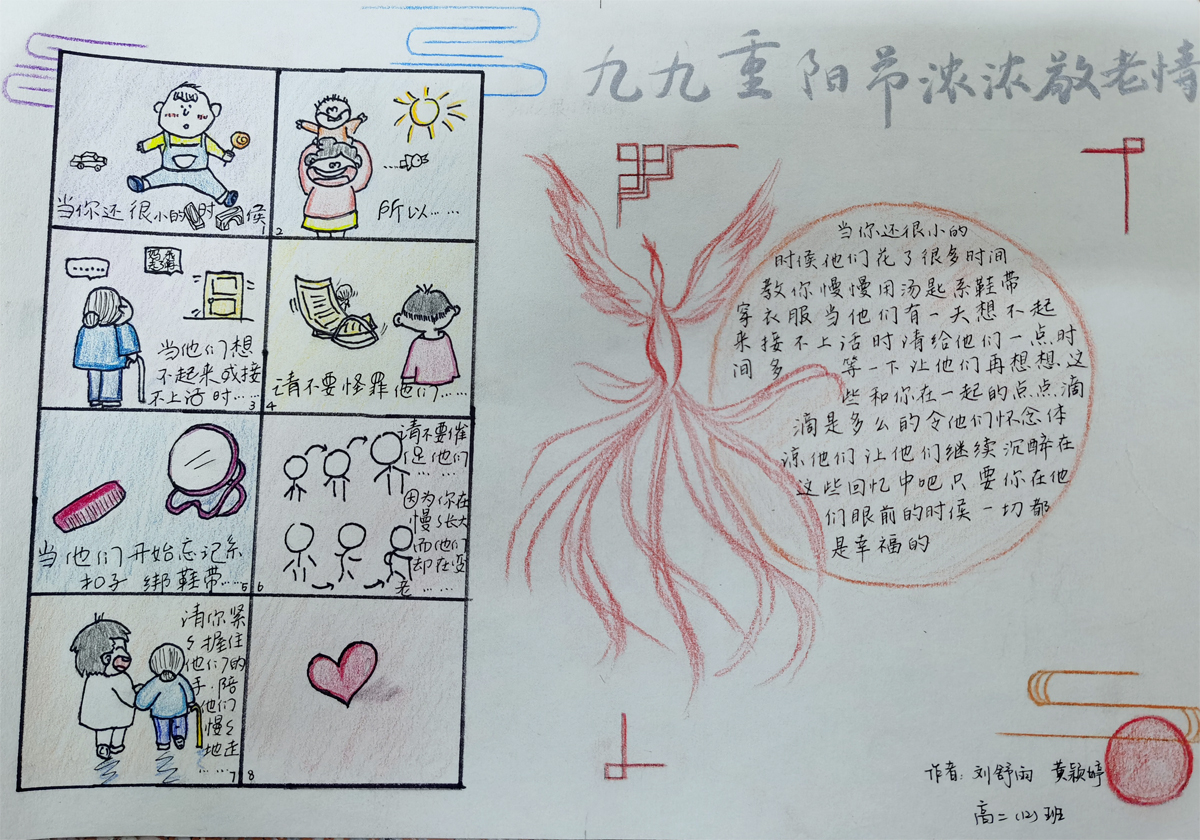 九九重阳节浓浓敬老情
当你还很小的时候
1
所以……
2
……
当他们想
不起来或接
不上话时……
3
请不要怪罪他们……
4
当他们开始忘记系
扣子 绑鞋带……
5
请不要催
促他们
……
因为你在
慢慢长大
而他们
却在变
老……
6
请你紧
紧握住
他们的
手.陪
他们
慢慢
地走
……
7
8
当你还很小的
时候他们花了很多时间
教你慢慢用汤匙系鞋带
穿衣服当他们有一天想不起
来接不上话时请给他们一点时
间多 等一下让他们再想想.这
些和你在一起的点点滴
滴是多么的令他们怀念体
谅他们让他们继续沉醉在
这些回忆中吧只要你在他
们眼前的时候一切都
是幸福的
作者:刘舒雨 黄颖婷
高二(12)班